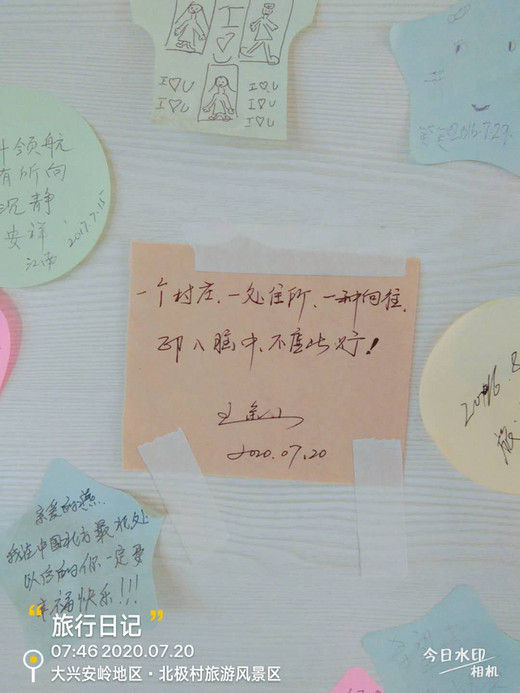 I
I♡U
I♡U
I♡U
I♡U
I♡U
2016.7.29.
领航
有所向
沉静
安详
2017.7.15
江西
一个村庄、一处住所、一种向往,
印入脑中,不虚此行!
2020.07.20
2016.8
亲爱的燕
我在中国北方最北处
以后的你一定要
幸福快乐!!!
“旅行日记”
07:46 2020.07.20
大兴安岭地区·北极村旅游风景区
今日水印
相机